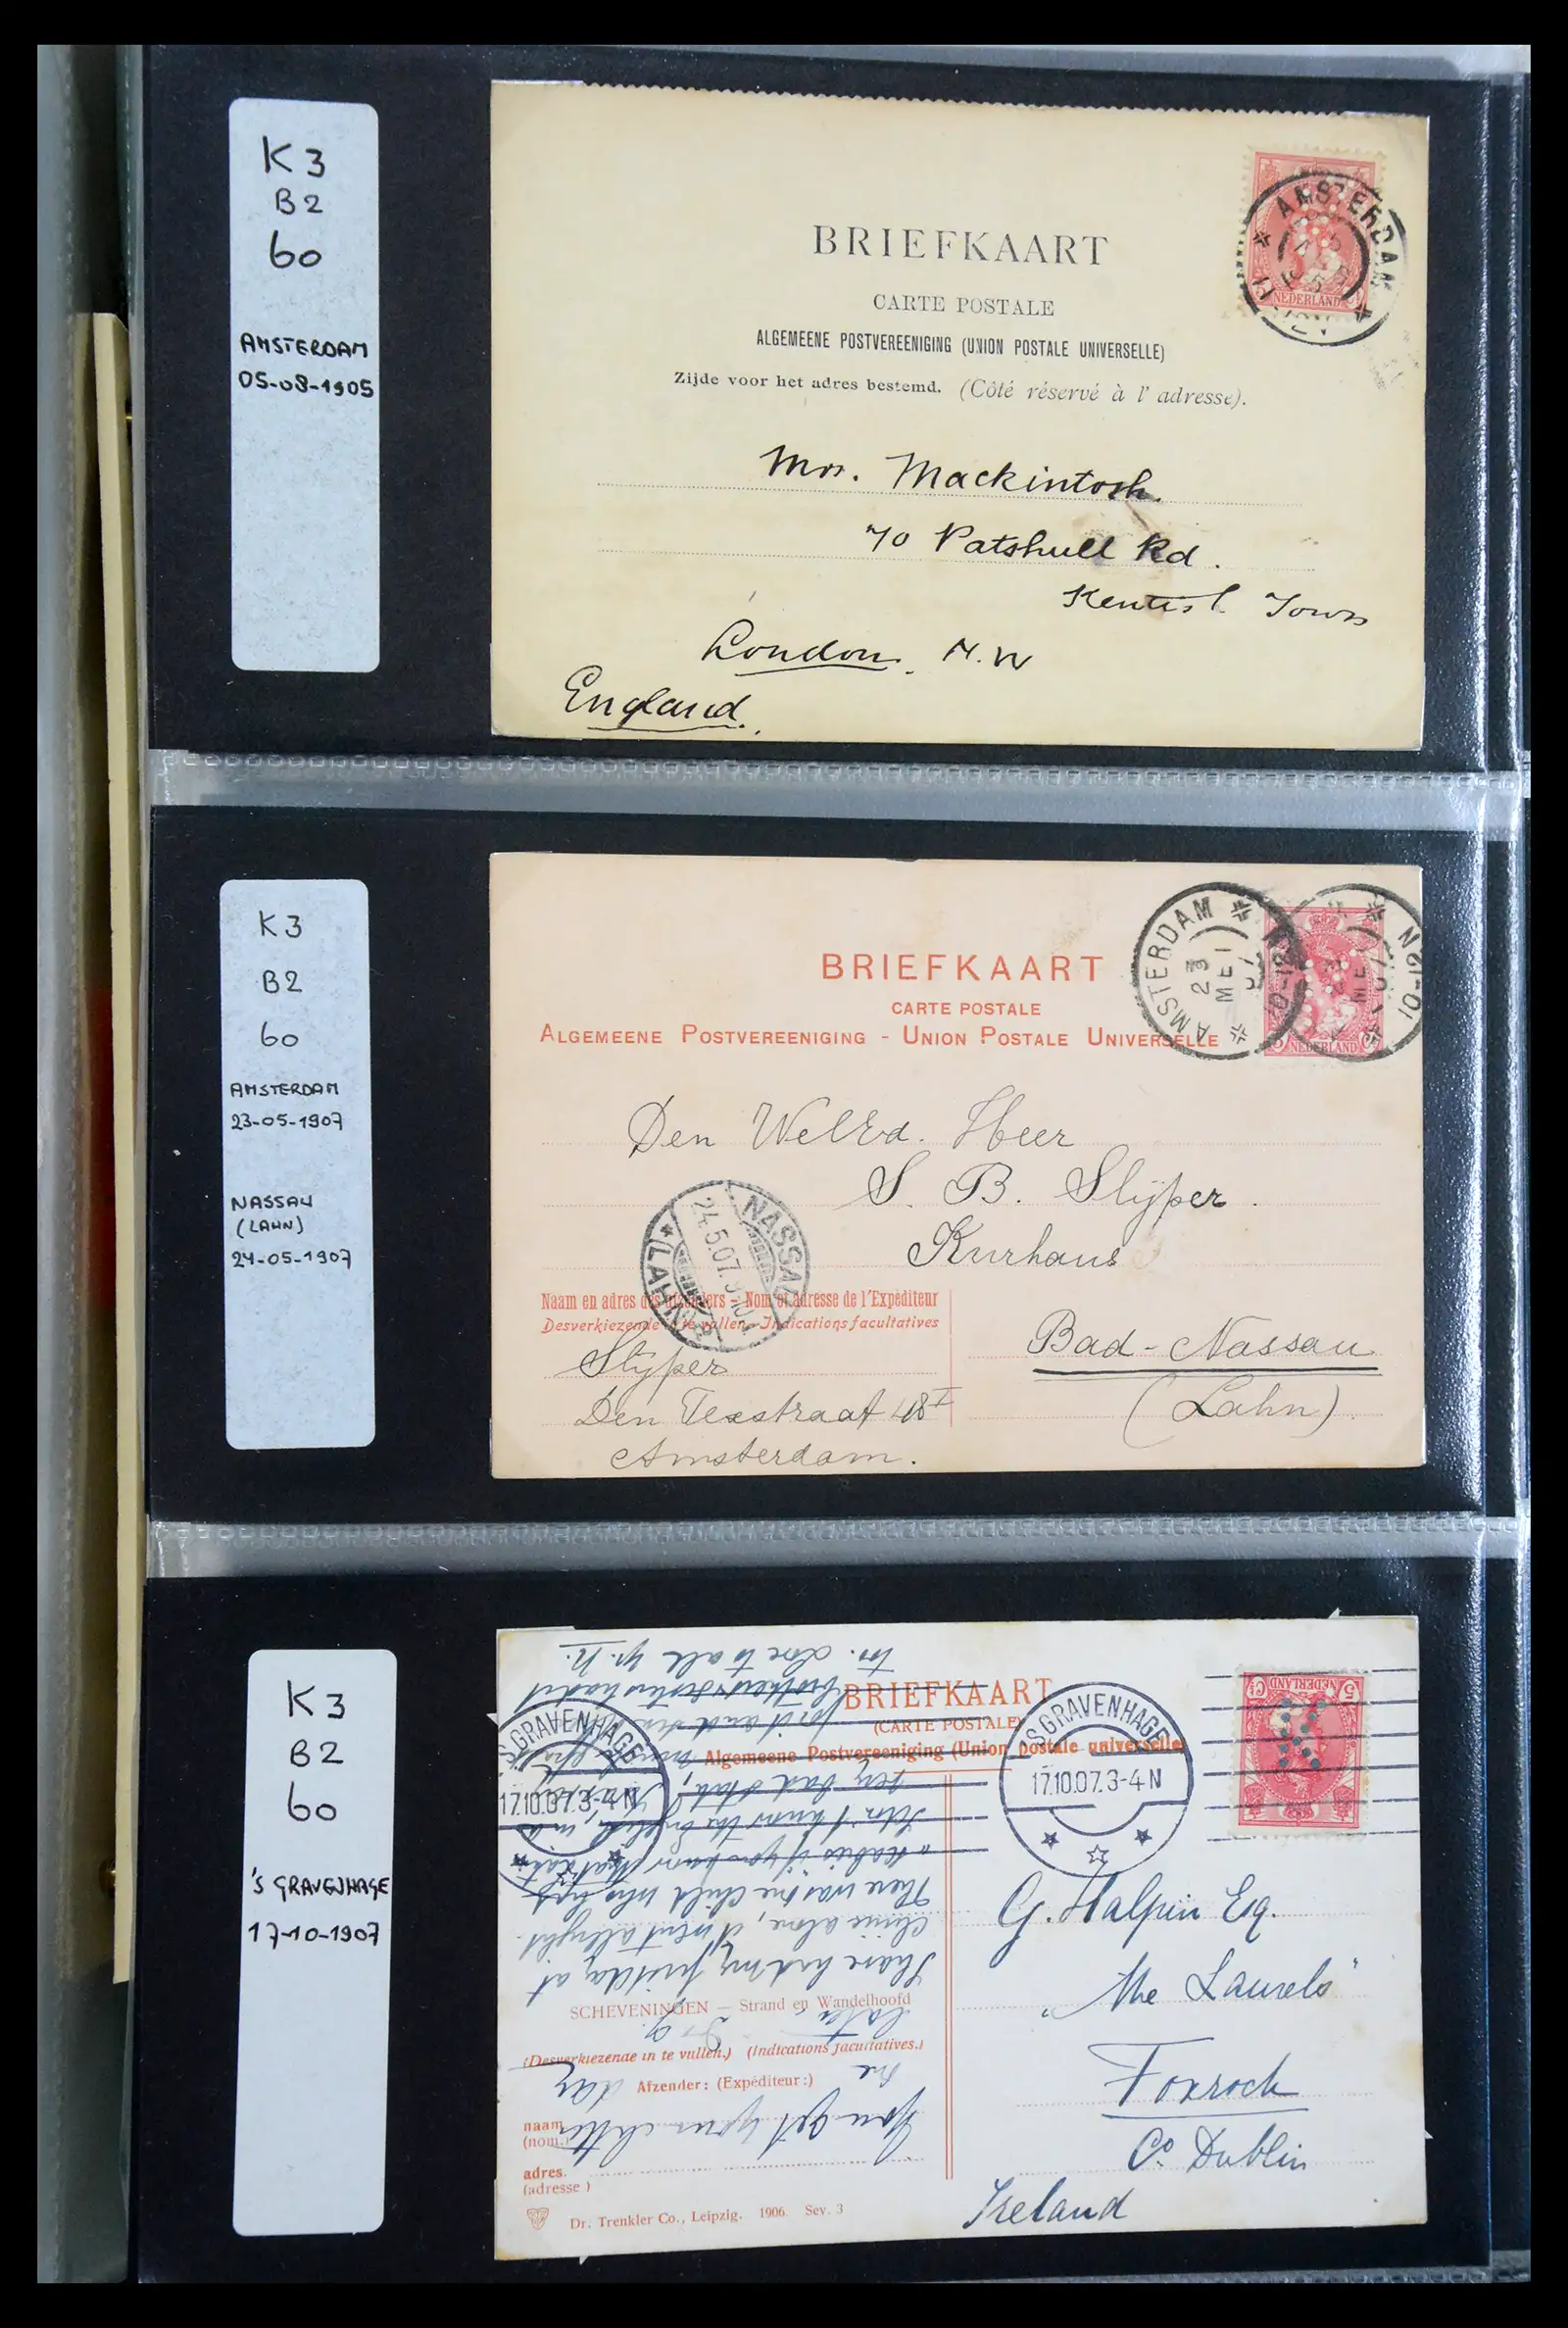 K3
B2
60
AMSTERDAM
05-08-1905
BRIEFKAART
CARTE POSTALE
ALGEMEENE POSTVEREENIGING (UNION POSTALE UNIVERSELLE)
Zijde voor het adres bestemd. (Côté réservé à l' adresse).
AMSTERDAM
NEDERLAND
Mrs. Mackintosh.
70 Patshull Rd.
Kentish Town
London. N.W
England.
K3
B2
60
AMSTERDAM
23-05-1907
NASSAU
(LAHN)
24-05-1907
BRIEFKAART
CARTE POSTALE
ALGEMEENE POSTVEREENIGING - UNION POSTALE UNIVERSELLE
AMSTERDAM
23 MEI 07
10-12N
NEDERLAND
Den WelEd. Heer
S. B. Slijper.
Kurhaus
NASSAU
24.5.07.
(LAHN)
Naam en adres des afzenders - Nom et adresse de l'Expéditeur
Desverkiezende in te vullen - Indications facultatives
Slijper
Den Texstraat 48 I
Amsterdam.
Bad-Nassau
(Lahn)
K3
B2
60
'S GRAVENHAGE
17-10-1907
BRIEFKAART
(CARTE POSTALE)
Algemeene Postvereeniging (Union postale universelle
'S GRAVENHAGE
17.10.07.3-4N
'S GRAVENHAGE
17.10.07.3-4N
5 Ct
NEDERLAND
G. Halpin Esq.
"The Laurels"
Foxrock
Co. Dublin
Ireland
You get your letter
one day
later
I have had my first day at
clinic alone, it went allright.
There was one child who
SCHEVENINGEN — Strand en Wandelhoofd
(Desverkiezende in te vullen.) (Indications facultatives.)
Afzender: (Expéditeur:)
naam
(nom.)
adres.
(adresse)
Dr. Trenkler Co., Leipzig. 1906. Sev. 3